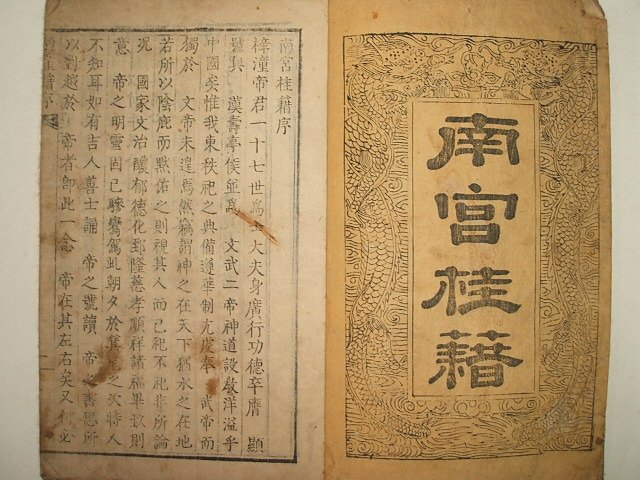 南宮桂籍
南宮桂籍序
梓潼帝君一十七世爲士大夫身廣行功德卒膺 顯
號與 漢壽亭侯並爲 文武二帝神道設教洋溢乎
中國矣惟我東秩祀之典備遵華制尤虔奉 武帝而
獨於 文帝未遑焉然竊謂神之在天下猶水之在地
若所以陰庇而默佑之則視其人而已祀不祀非所論
況 國家文治醲郁德化郅隆慈孝顧祥諸福畢致則
意 帝之明靈固已驂鸞駕虬朝夕於 之次特人
不知耳如有吉人善士誦 帝之號讀 帝之書恐所
以對越於 帝者卽此一念 帝在其左右矣又 必
南宮桂籍序